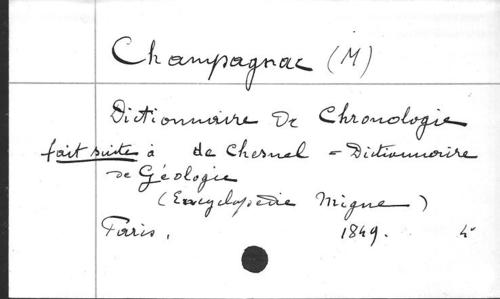 Champagnac (M)
Dictionnaire de Chronologie
fait suite à de Chesnel = Dictionnaire
de Géologie
(Encyclopédie Migne)
Paris, 1849. 4°